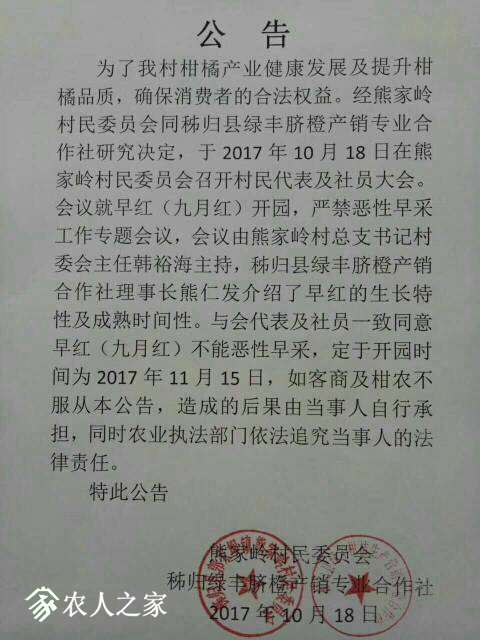 公 告
为了我村柑橘产业健康发展及提升柑
橘品质，确保消费者的合法权益。经熊家岭
村民委员会同秭归县绿丰脐橙产销专业合
作社研究决定，于 2017 年 10 月 18 日在熊
家岭村民委员会召开村民代表及社员大会。
会议就早红（九月红）开园，严禁恶性早采
工作专题会议，会议由熊家岭村总支书记村
委会主任韩裕海主持，秭归县绿丰脐橙产销
合作社理事长熊仁发介绍了早红的生长特
性及成熟时间性。与会代表及社员一致同意
早红（九月红）不能恶性早采，定于开园时
间为 2017 年 11 月 15 日，如客商及柑农不
服从本公告，造成的后果由当事人自行承
担，同时农业执法部门依法追究当事人的法
律责任。
特此公告
熊家岭村民委员会
秭归绿丰脐橙产销专业合作社
2017 年 10 月 18 日
农人之家